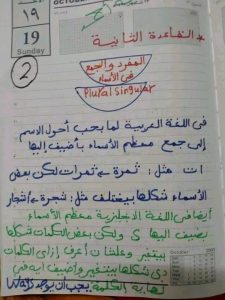 OCTOBER
١٩
19
Sunday
2
* القاعدة الثانية
المفرد والجمع
فى الأسماء
Plural Singular
فى اللغة العربية لما بحب أحول الاسم
إلى جمع معظم الأسماء بأضيف إليها
ات مثل : ثمرة ← ثمرات لكن بعض
الأسماء شكلها بيختلف مثل : شجرة ← أشجار
أيضا فى اللغة الانجليزية معظم الأسماء
بضيف اليها S ولكن بعض الكلمات شكلها
بيتغير وعلشان أعرف إزاى الكلمات
دى شكلها بيتغير وأضيف ايه فى
نهاية الكلمة يجب ان يوجد ways
October